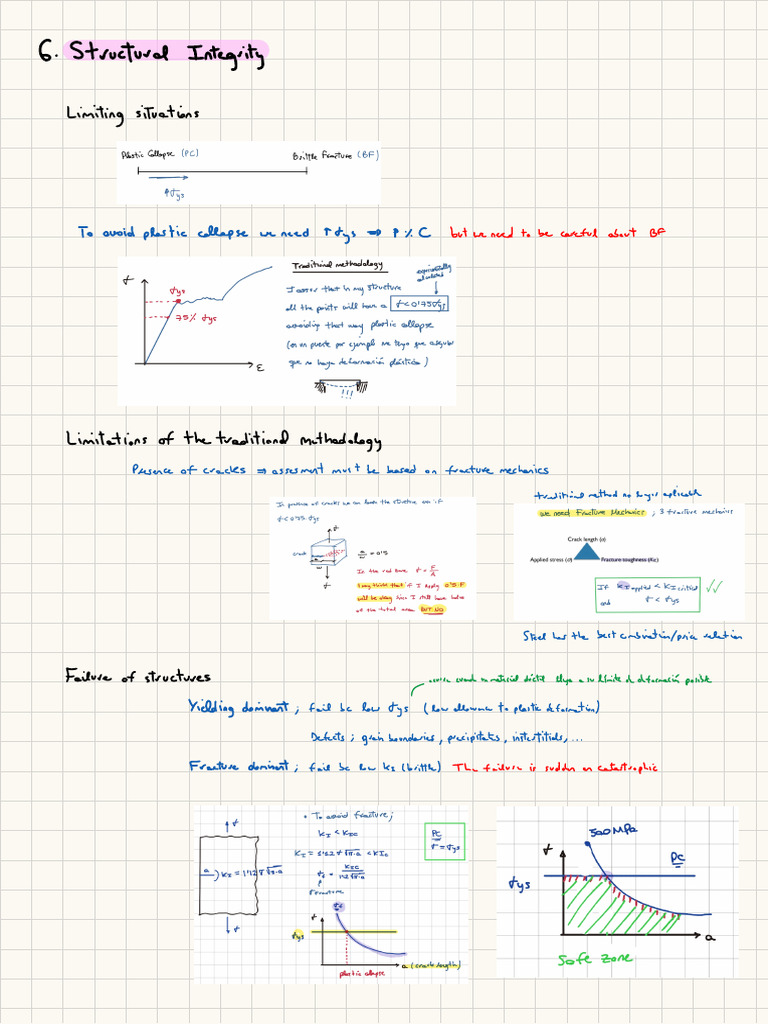 6. Structural Integrity
Limiting situations
Plastic Collapse (PC)
Brittle Fracture (BF)
↑σys
To avoid plastic collapse we need ↑σys ⇒ ↑%C but we need to be careful about BF
Traditional methodology
σ
σys
75% σys
ε
experimentally
calculated
that in my structure
all the points will have a σ<0'75σys
avoiding that way plastic collapse
(en un puente por ejemplo me tengo que asegurar
que no haya deformación plástica)
!!!
Limitations of the traditional methodology
Presence of cracks ⇒ assesment must be based on fracture mechanics
In presence of cracks we can the structure even if
σ<0'75 σys
σ
crack
w
σ
a/w = 0'5
In the red zone σ = F/A
I may think that if I apply 0'5·F
will be okay since I still have half
of the total area BUT NO
traditional method no longer aplicable
we need Fracture Mechanics ; 3 fracture mechanics
Crack length (a)
Applied stress (σ)
Fracture toughness (KIC)
If KI applied < KI critical
and σ < σys
Steel has the best combination/price relation
Failure of structures
cuando un material dúctil llega a su límite de deformación posible
Yielding dominant ; fail bc low σys (low allowance to plastic deformation)
Defects ; grain boundaries, precipitates, interstitials, ...
Fracture dominant ; fail bc low KI (brittle) The failure is sudden and catastrophic
σ
a
KI = 1'12 σ √π·a
σ
• To avoid fracture ;
KI < KIC
KI = 1'12 σ √π·a < KIC
σf = KIC / 1'12 √π·a
fracture
PC
σ = σys
σf
σ
σys
a (crack length)
plastic collapse
500 MPa
σ
PC
σys
a
Safe zone